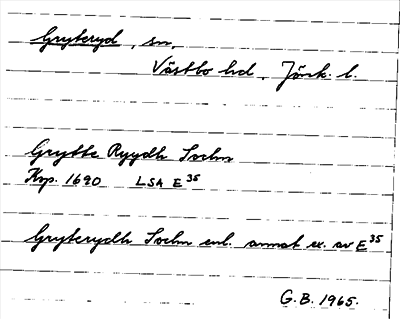 Gryteryd, sn,
Västbo hd, Jönk. l.
Grytte Ryydh Sochn
Kop. 1690 LSA E 35
Gryterydh Sochn enl. annat ex. av E 35
G.B. 1965.